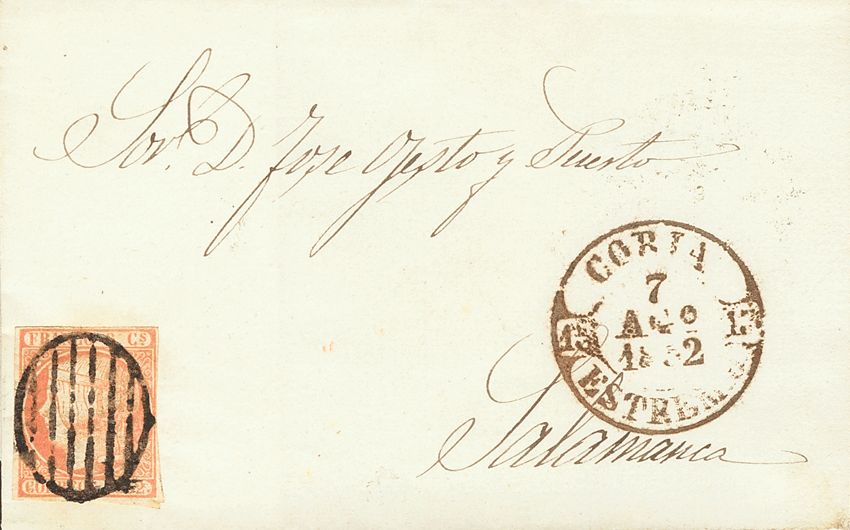 Sor. D. Jose Gesto y Puerto
CORIA
7
AGO
1852
ESTREM
Salamanca
CS